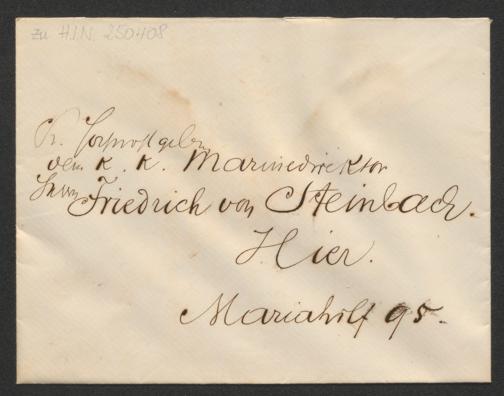 zu H.I.N. 250408
Sr. Hochwohlgeboren
dem K. K. Marinedirektor
Herrn Friedrich von Steinbach.
Hier.
Mariahilf 95.